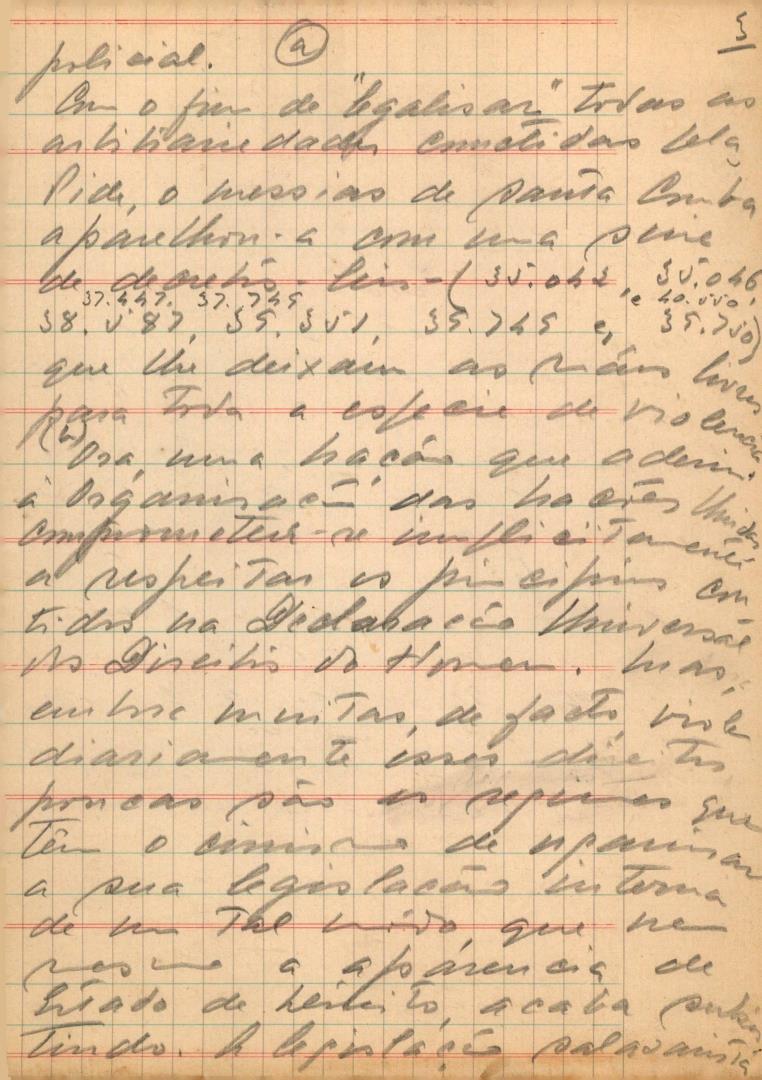 3
policial. (a)
Com o fim de "legalisar" todas as
arbitrariedades cometidas pela
Pide, o messias de Santa Comba
aparelhou-a com uma série
de decretos-leis - (35.042, 35.046,
37.447. 37.749 e 40.550,
38.587, 39.351, 39.749 e, 39.750)
que lhe deixam as mãos livres
para toda a especie de violencia
(b)
Ora, uma nação que aderiu
à Organisação das Nações Unidas
comprometeu-se implicitamente
a respeitar os principios con
tidos na Declaração Universal
dos Direitos do Homem. Mas,
embora muitas, de facto, viole
diariamente esses direitos
poucas são os regimes que
têm o cinismo de organisar
a sua legislação interna
de um tal modo que nem
mesmo a aparencia de
Estado de Direito, acaba subsis
tindo. A legislação salazarista